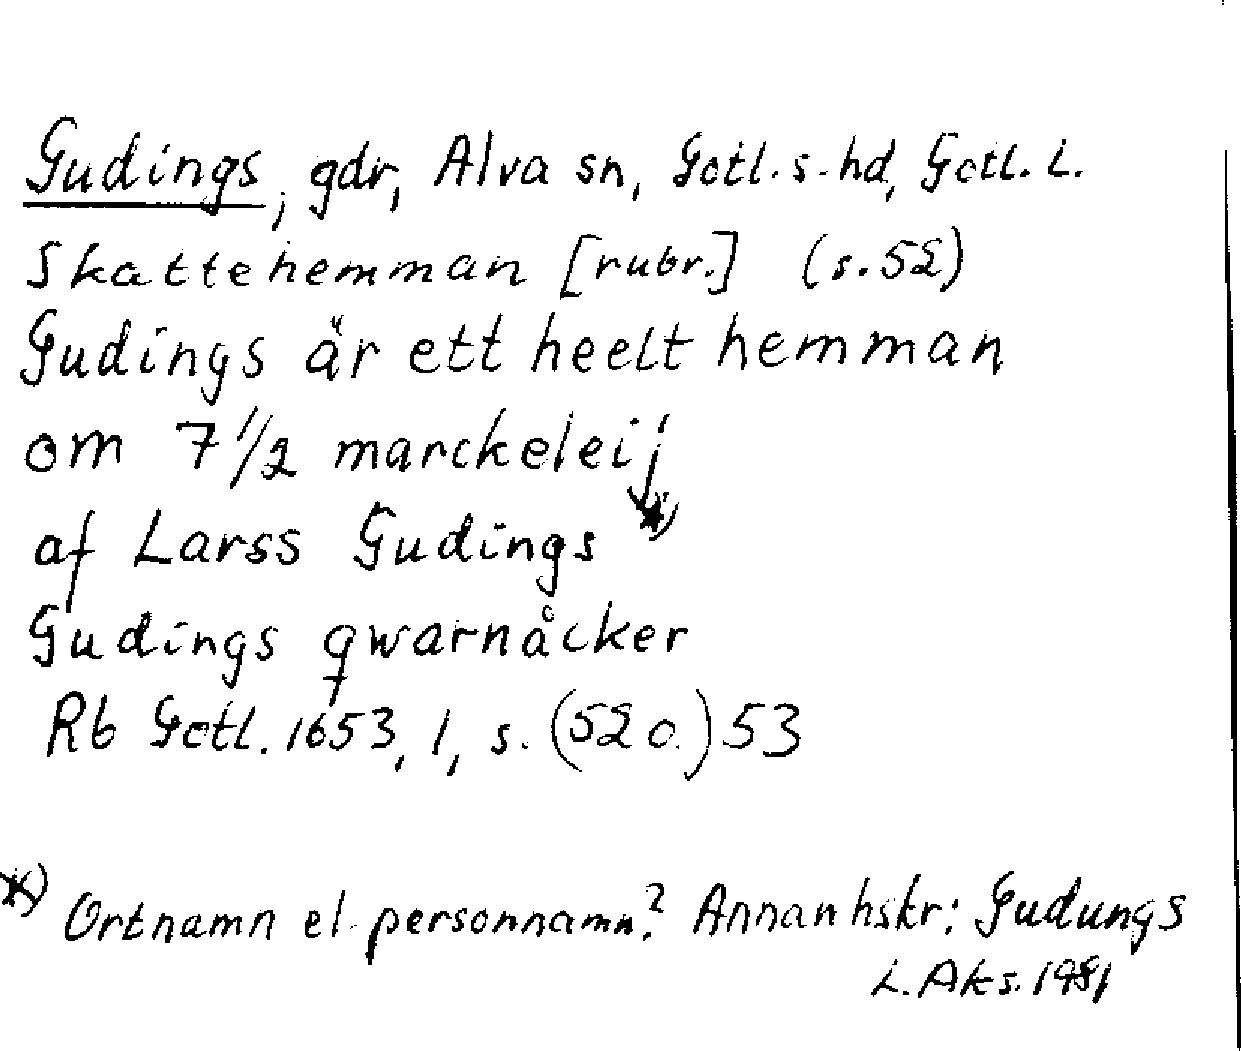 Gudings, gdr, Alva sn, Gotl. s. hd, Gotl. L.
Skattehemman [rubr.] (s. 52)
Gudings är ett heelt hemman
om 7 1/2 marckeleij
af Larss Gudings *)
Gudings qwarnåcker
Rb Gotl. 1653, 1, s. (52 o.) 53
*) Ortnamn el. personnamn? Annan hskr: Gudungs
L. Aks. 1981